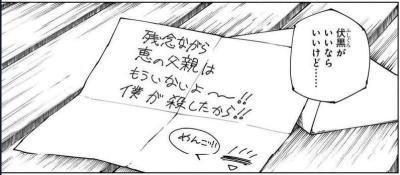 伏黒が
いいなら
いいけど……
残念ながら
恵の父親は
もういないよ〜〜!!
僕が殺したから!!
!!!!